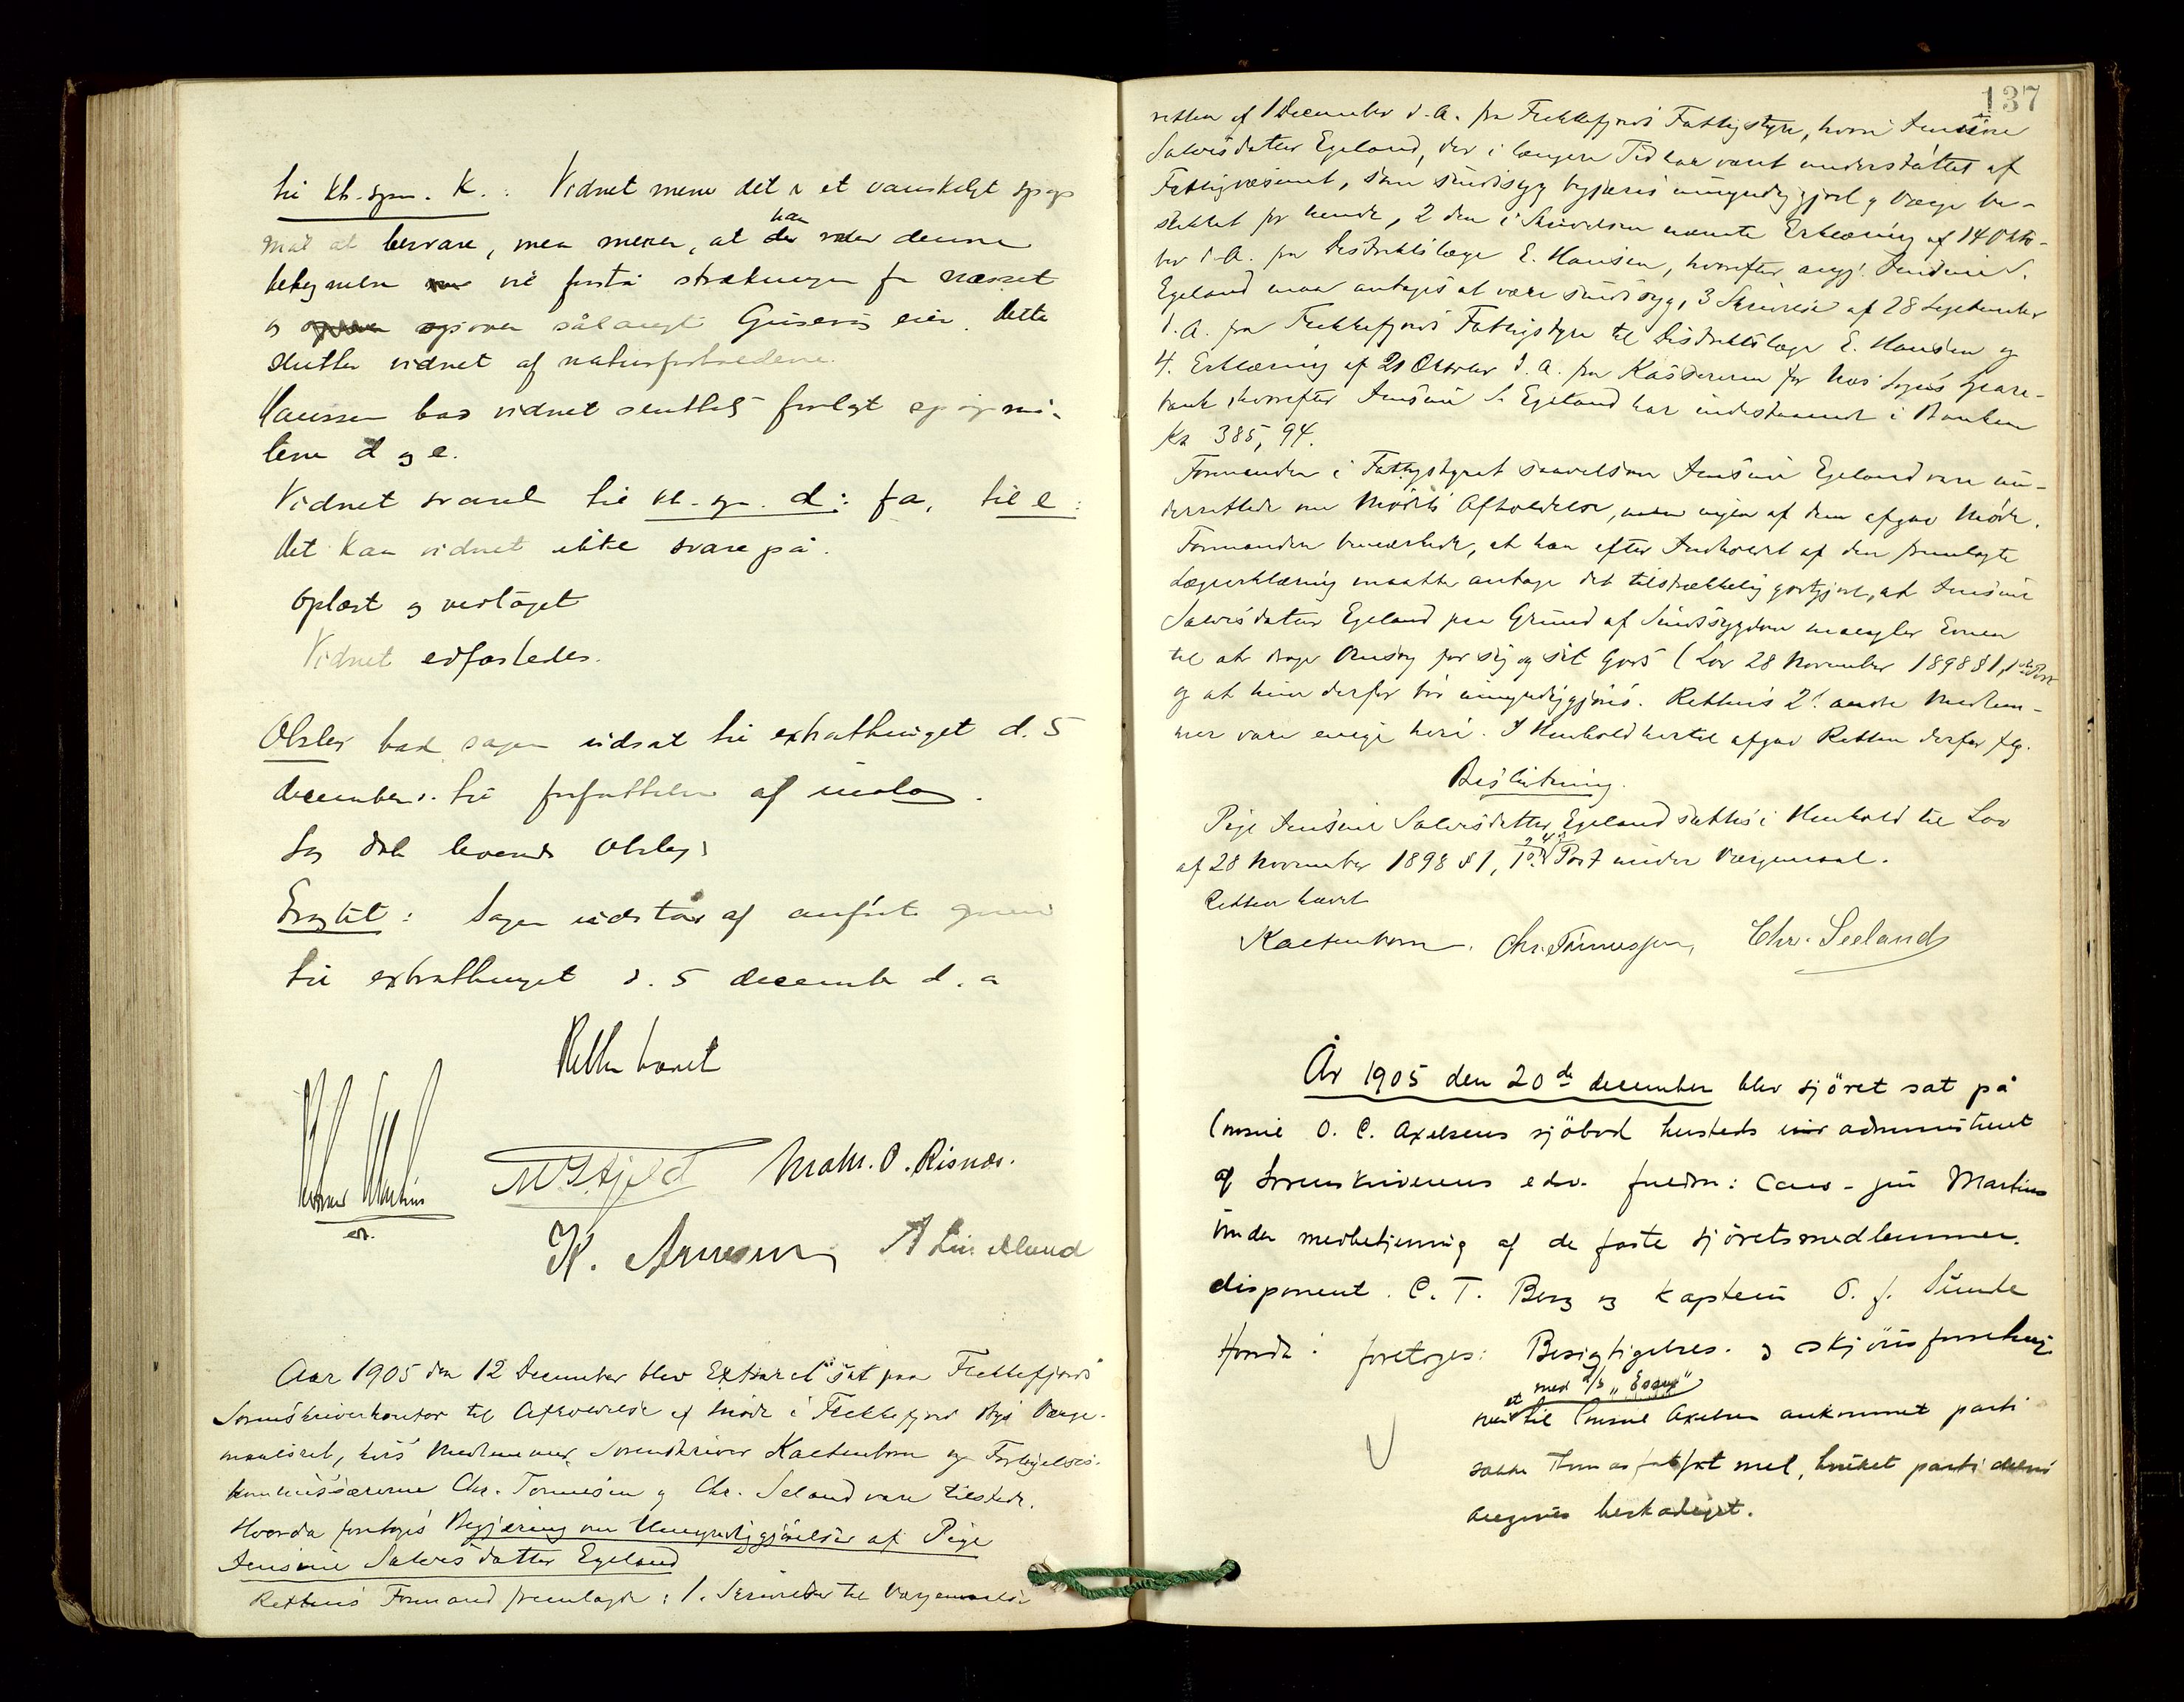 til kt.spm. K.: Vidnet mener det er et vanskeligt spørgs
mål at besvare, men mener, at han under denne
betegnelse vil forstå strækningen fra næsset
og opover sålangt Gusevis eier. Dette
slutter vidnet af naturforholdene.
Haussen bad vidnet sluttelig forelagt spørgsmå-
lene d og e.
Vidnet svared til kt. sp. d: ja, til e:
Det kan vidnet ikke svare på.
Oplæst og vedtaget
Vidnet edfæstedes.
Olsløv bad sagen udsat til extrathinget d. 5
december. til forfattelse af
Så dde
Eragtet: Sagen udstår af anførte grund
til extrathinget d. 5 december d. a
Retten hævet
Martins
ed.
M Stjeld Math. O. Risnes.
K. Arnesen A Lindland
Aar 1905 den 12 December blev Extraret sat paa Flekkefjords
Sorenskriverkontor til Afholdelse af Møde i Flekkefjord Bys Værge-
maalsret, hvis Medlemmer Sorenskriver Kaltenborn og Forligelses-
kommissærerne Chr. Tønnesen og Chr. Seland vare tilstede.
Hvorda foretoges Begjæring om Umyndiggjørelse af Pige
Jensine Salvesdatter Egeland
Rettens Formand fremlagde: 1. Skrivelse til Værgemaals
137
retten af 1 December d.A. fra Flekkefjords Fattigstyre, hvori Jensine
Salvesdatter Egeland, der i længere Tid har været understøttet af
Fattigvæsenet, som sindssyg begjæres umyndiggjort og Værge be-
skikket for hende, 2 den i Skrivelsen nævnte Erklæring af 14 Okto-
ber d.A. fra Distriktslæge E. Hansen, hvorefter angj. Jensine S.
Egeland maa antages at være sindssyg, 3 Skrivelse af 28 September
d.A. fra Flekkefjords Fattigstyre til Distriktslæge E. Hansen og
4. Erklæring af 21 Oktober d.A. fra Kassereren for Næs Sogns Spare-
bank, hvorefter Jensine S. Egeland har indestaaende i Banken
Kr 385,94.
Formanden i Fattigstyret saavelsom Jensine Egeland vare un-
derrettede om Mødets Afholdelse, men ingen af dem afgav Møde.
Formanden bemærkede, at han efter Indholdet af den fremlagte
Lægeerklæring maatte antage det tilstrækkelig godtgjort, at Jensine
Salvesdatter Egeland paa Grund af Sindssygdom mangler Evnen
til at drage Omsorg for sig og sit Gods (Lov 28 November 1898 § 1, 1ste Post
og at hun derfor bør umyndiggjøres. Rettens 2de andre Medlem-
mer vare enige heri. I Henhold hertil afgav Retten derfor flg.
Beslutning.
Pige Jensine Salvesdatter Egeland sættes i Henhold til Lov
af 28 November 1898 § 1, 1ste Post under Værgemaal.
Retten hævet
Kaltenborn. Chr. Tønnessen, Chr. Seeland
År 1905 den 20de december blev sjöret sat på
Consul O. C. Axelsens sjöbod hersteds administreret
af Sorenskriverens edsv. fuldm: Cand. jur Martins
under medbetjening af de faste sjöretsmedlemmer.
disponent C. T. Berg og kaptein O. J. Sunde
Hvorda foretoges: Besigtigelses. og skjönsforretning
med d/s "Essex"
et til Consul Axelsen ankommet parti
sække Thomasfosfat mel, hvilket parti
angives beskadiget.